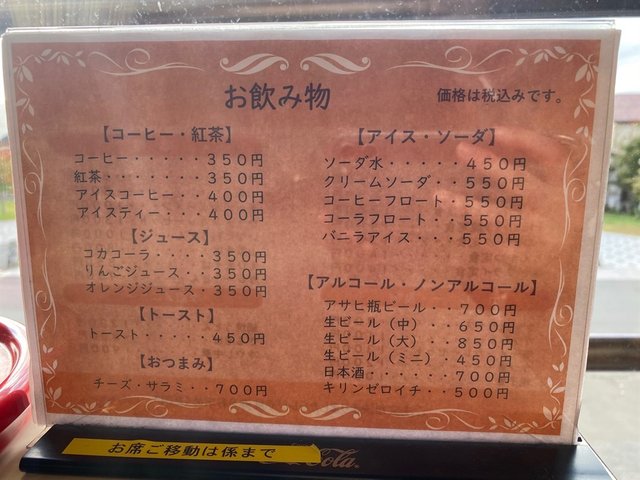 お飲み物
価格は税込みです。
【コーヒー・紅茶】
コーヒー・・・・・350円
紅茶・・・・・・・350円
アイスコーヒー・・400円
アイスティー・・・400円
【ジュース】
コカコーラ・・・・350円
りんごジュース・・350円
オレンジジュース・350円
【トースト】
トースト・・・・・450円
【おつまみ】
チーズ・サラミ・・700円
【アイス・ソーダ】
ソーダ水・・・・・450円
クリームソーダ・・550円
コーヒーフロート・550円
コーラフロート・・550円
バニラアイス・・・550円
【アルコール・ノンアルコール】
アサヒ瓶ビール・・700円
生ビール（中）・・650円
生ビール（大）・・850円
生ビール（ミニ）・450円
日本酒・・・・・・700円
キリンゼロイチ・・500円
お席ご移動は係まで